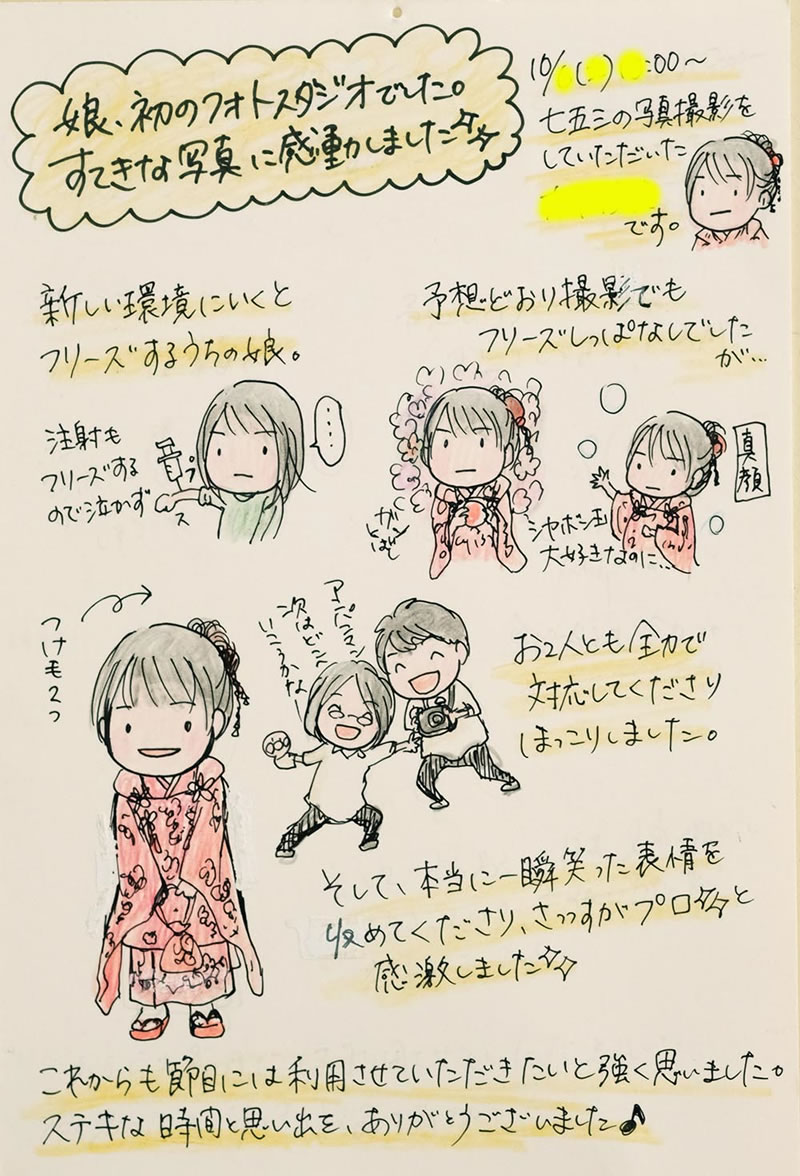 娘、初のフォトスタジオでした。
すてきな写真に感動しました
10/ ( ) :00〜
七五三の写真撮影を
していただいた
です。
新しい環境にいくと
フリーズするうちの娘。
注射も
フリーズする
ので泣かず
プ
ス
…
予想どおり撮影でも
フリーズしっぱなしでした
が…
ガン
とばし
シャボン玉
大好きなのに…
真顔
つけ毛2つ
アンパンマン
次はどこへ
いこうかなー
お2人とも全力で
対応してくださり
ほっこりしました。
そして、本当に一瞬笑った表情を
収めてくださり、さっすがプロと
感激しました
これからも節目には利用させていただきたいと強く思いました。
ステキな時間と思い出を、ありがとうございました♪